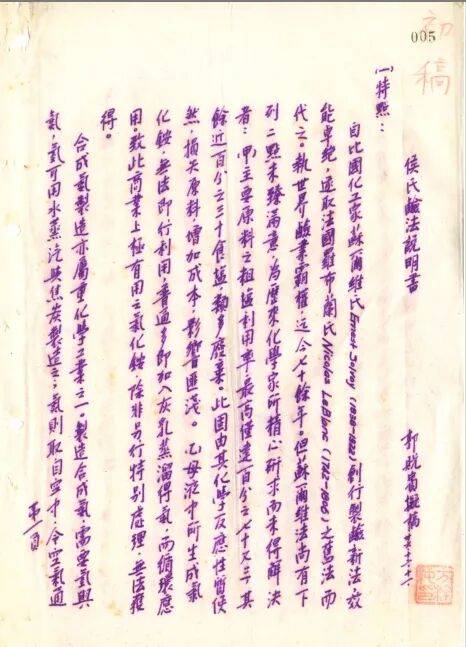 005
初稿
侯氏鹼法說明書
郭锐蜀擬稿
(一)特點：
自比國化工家蘇爾維氏Ernest Solvay (1838-1922)創行製鹼新法，效
能卓絕，遂取法國羅布蘭氏Nicolas LeBlanc (1742-1806)之舊法而
代之。執世界鹼業霸權，迄今七十餘年。但蘇爾維法尚有下
列二點未臻滿意，為歷來化學家所積心研求而未得解決
者：甲、主要原料之粗鹽利用率最高僅達百分之七十又三，其
餘近百分之三十食鹽勢多廢棄。此固由其化學反應性質使
然，損失原料增加成本，影響匪淺。乙、母液中所生成氯
化銨，無法即行利用，普通多即加入灰乳蒸溜得氨，而循環應
用。致此商業上極有用之氯化銨，除非另行特別處理，無法獲
得。
合成氨製造亦屬重化學工業之一。製造合成氨，需要氫與
氮。氫可用水蒸汽與焦炭製造之；氮則取自空中，令空氣通
第一頁